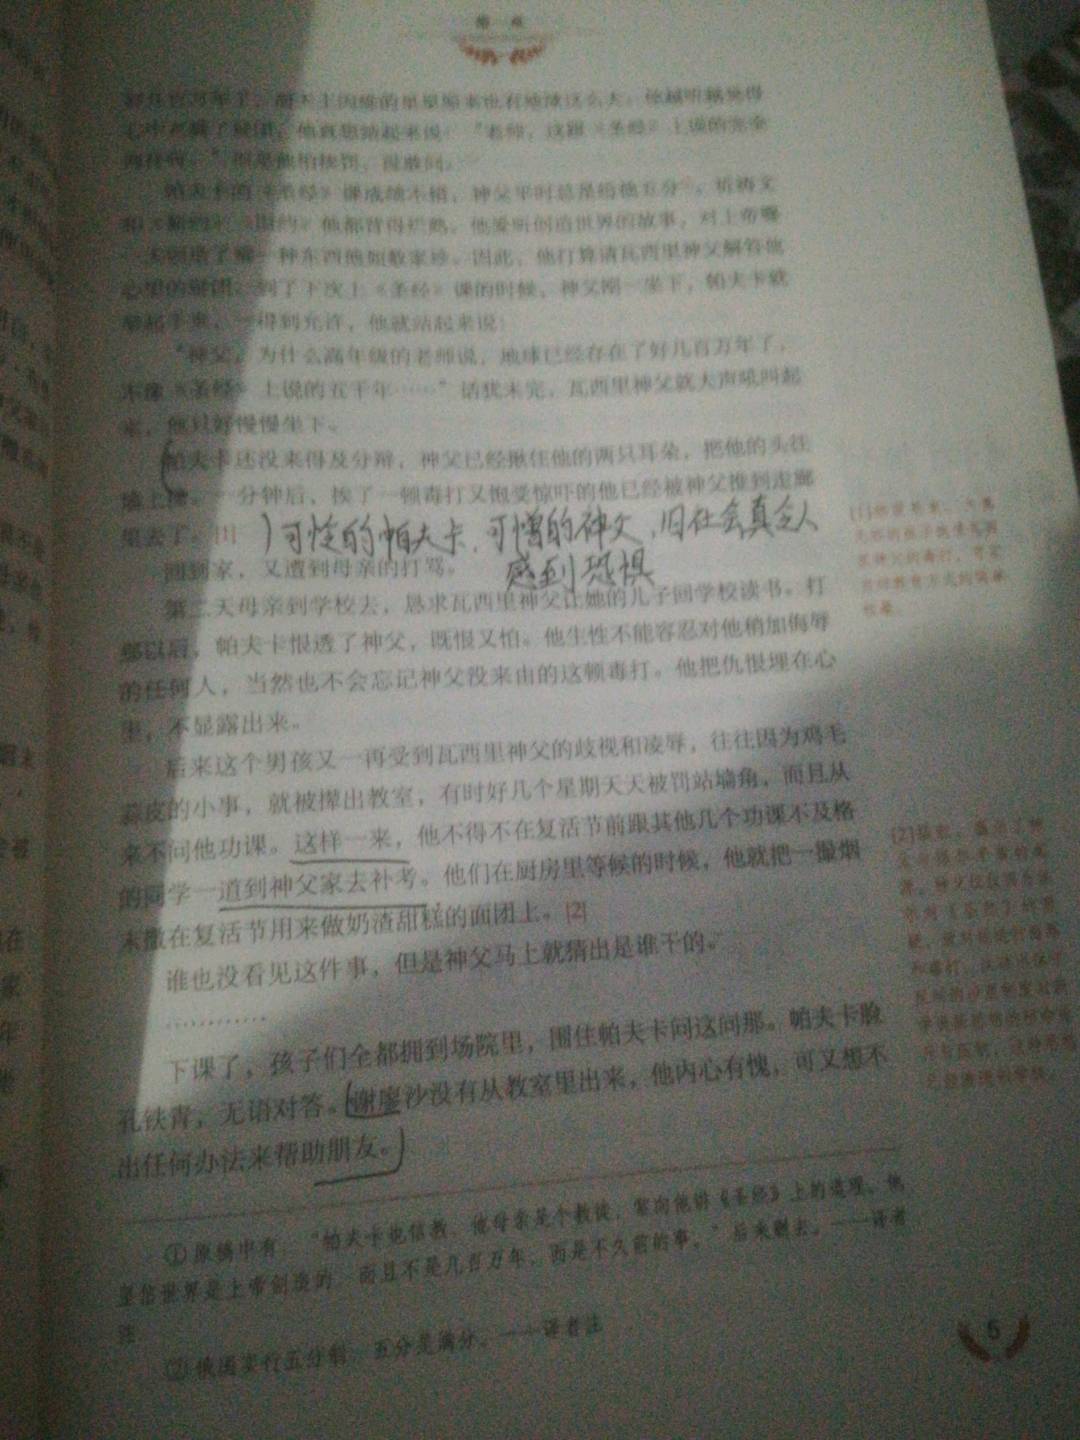 第一章
好几百万年了，
心中充满了疑团，他真想站起来说：“老师，这跟《圣经》上说的完全
两样呀。”但是他怕挨罚，没敢问。
帕夫卡的《圣经》课成绩不错，神父平时总是给他五分②。祈祷文
和《新约》《旧约》他都背得烂熟。他爱听创造世界的故事，对上帝哪
一天创造了哪一种东西他如数家珍。因此，他打算请瓦西里神父解答他
心里的疑团。到了下次上《圣经》课的时候，神父刚一坐下，帕夫卡就
举起手来，一得到允许，他就站起来说：
“神父，为什么高年级的老师说，地球已经存在了好几百万年了，
不像《圣经》上说的五千年……”话犹未完，瓦西里神父就大声吼叫起
来，他只好慢慢坐下。
帕夫卡还没来得及分辩，神父已经揪住他的两只耳朵，把他的头往
墙上撞。一分钟后，挨了一顿毒打又饱受惊吓的他已经被神父推到走廊
里去了。[1]
可怜的帕夫卡，可憎的神父，旧社会真令人
感到恐惧
回到家，又遭到母亲的打骂。
第二天母亲到学校去，恳求瓦西里神父让她的儿子回学校读书。打
那以后，帕夫卡恨透了神父，既恨又怕。他生性不能容忍对他稍加侮辱
的任何人，当然也不会忘记神父没来由的这顿毒打。他把仇恨埋在心
里，不显露出来。
后来这个男孩又一再受到瓦西里神父的歧视和凌辱，往往因为鸡毛
蒜皮的小事，就被撵出教室，有时好几个星期天天被罚站墙角，而且从
来不问他功课。这样一来，他不得不在复活节前跟其他几个功课不及格
的同学一道到神父家去补考。他们在厨房里等候的时候，他就把一撮烟
末撒在复活节用来做奶渣甜糕的面团上。[2]
谁也没看见这件事，但是神父马上就猜出是谁干的。
…………
下课了，孩子们全都拥到场院里，围住帕夫卡问这问那。帕夫卡脸
孔铁青，无语对答。谢廖沙没有从教室里出来，他内心有愧，可又想不
出任何办法来帮助朋友。
①原稿中有：“帕夫卡也信教，他母亲是个教徒，常向他讲《圣经》上的道理。他
坚信世界是上帝创造的，而且不是几百万年，而是不久前的事。”后来删去。——译者
注
②俄国实行五分制，五分是满分。——译者注
5